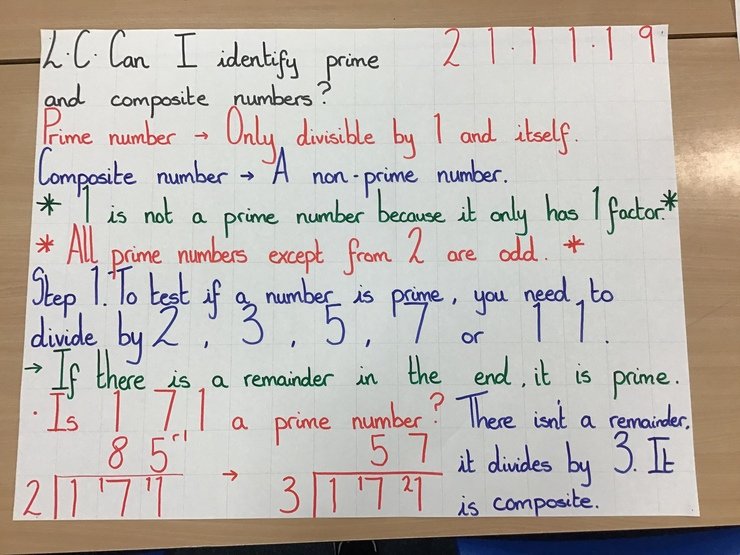 L.C. Can I identify prime 21.11.19
and composite numbers?
Prime number → Only divisible by 1 and itself.
Composite number → A non-prime number.
* 1 is not a prime number because it only has 1 factor.*
* All prime numbers except from 2 are odd. *
Step 1. To test if a number is prime, you need to
divide by 2, 3, 5, 7 or 11.
→ If there is a remainder in the end, it is prime.
· Is 171 a prime number? There isn't a remainder,
85r1 → 57 it divides by 3. It
2 1 17 11 3 1 17 21 is composite.